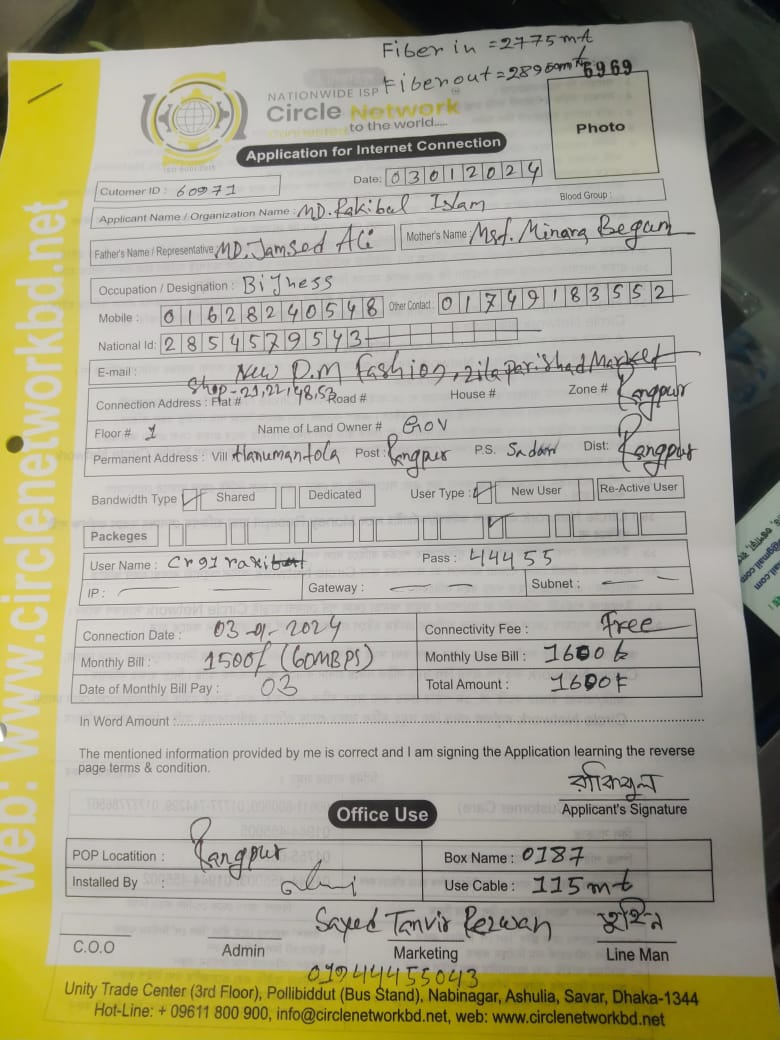 Fiber in = 2775 mt
Fiber out = 2890 mt
6969
NATIONWIDE ISP
Circle Network
to the world.....
ISO 9001:2015
Photo
Application for Internet Connection
Cutomer ID : 60971
Date: 03012024
Applicant Name / Organization Name : MD. Rakibul Islam Blood Group :
Father's Name / Representative MD. Jamsed Ali Mother's Name : Mst. Minara Begum
Occupation / Designation : Bijness
Mobile : 01628240548 Other Contact : 01749183552
National Id: 2854579543
E-mail : New D.M Fashion, zila parishad Market
Shop - 21,22,48,53
Connection Address : Flat # Road # House # Zone # Rangpur
Floor # 1 Name of Land Owner # Gov
Permanent Address : Vill Hanumantola Post : Rangpur P.S. Sadar Dist: Rangpur
Bandwidth Type Shared Dedicated User Type : New User Re-Active User
Packeges
User Name : Cr91 rakib Pass : 44455
IP : Gateway : Subnet :
Connection Date : 03-01-2024 Connectivity Fee : Free
Monthly Bill : 1500/ (60MBPS) Monthly Use Bill : 1600 t
Date of Monthly Bill Pay : 03 Total Amount : 1600 t
In Word Amount :
The mentioned information provided by me is correct and I am signing the Application learning the reverse
page terms & condition.
রাকিবুল
Applicant's Signature
Office Use
POP Locatition : Rangpur Box Name : 0187
Installed By Use Cable : 115 mt
Sayed Tanvir Rezwan তুহিন
C.O.O Admin Marketing Line Man
01944455043
Unity Trade Center (3rd Floor), Pollibiddut (Bus Stand), Nabinagar, Ashulia, Savar, Dhaka-1344
Hot-Line: + 09611 800 900, info@circlenetworkbd.net, web: www.circlenetworkbd.net
web: www.circlenetworkbd.net